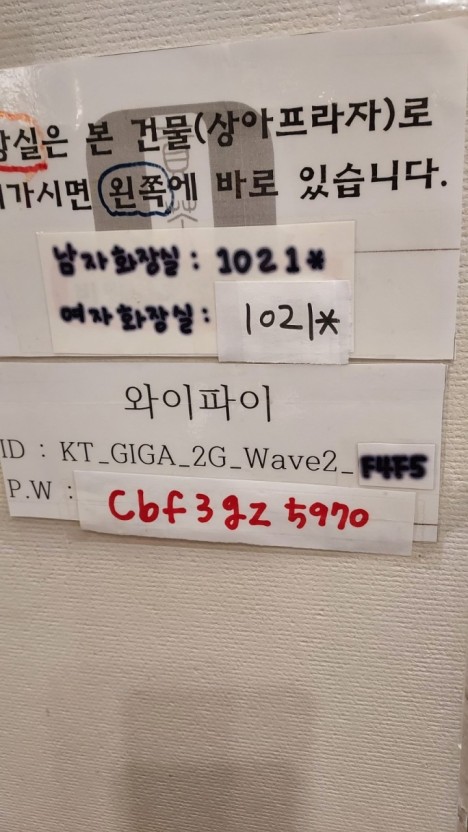 장실은 본 건물(상아프라자)로
가시면 왼쪽에 바로 있습니다.
남자화장실 : 1021*
여자화장실 : 1021*
와이파이
ID : KT_GIGA_2G_Wave2_F4F5
P.W : cbf3gz5970